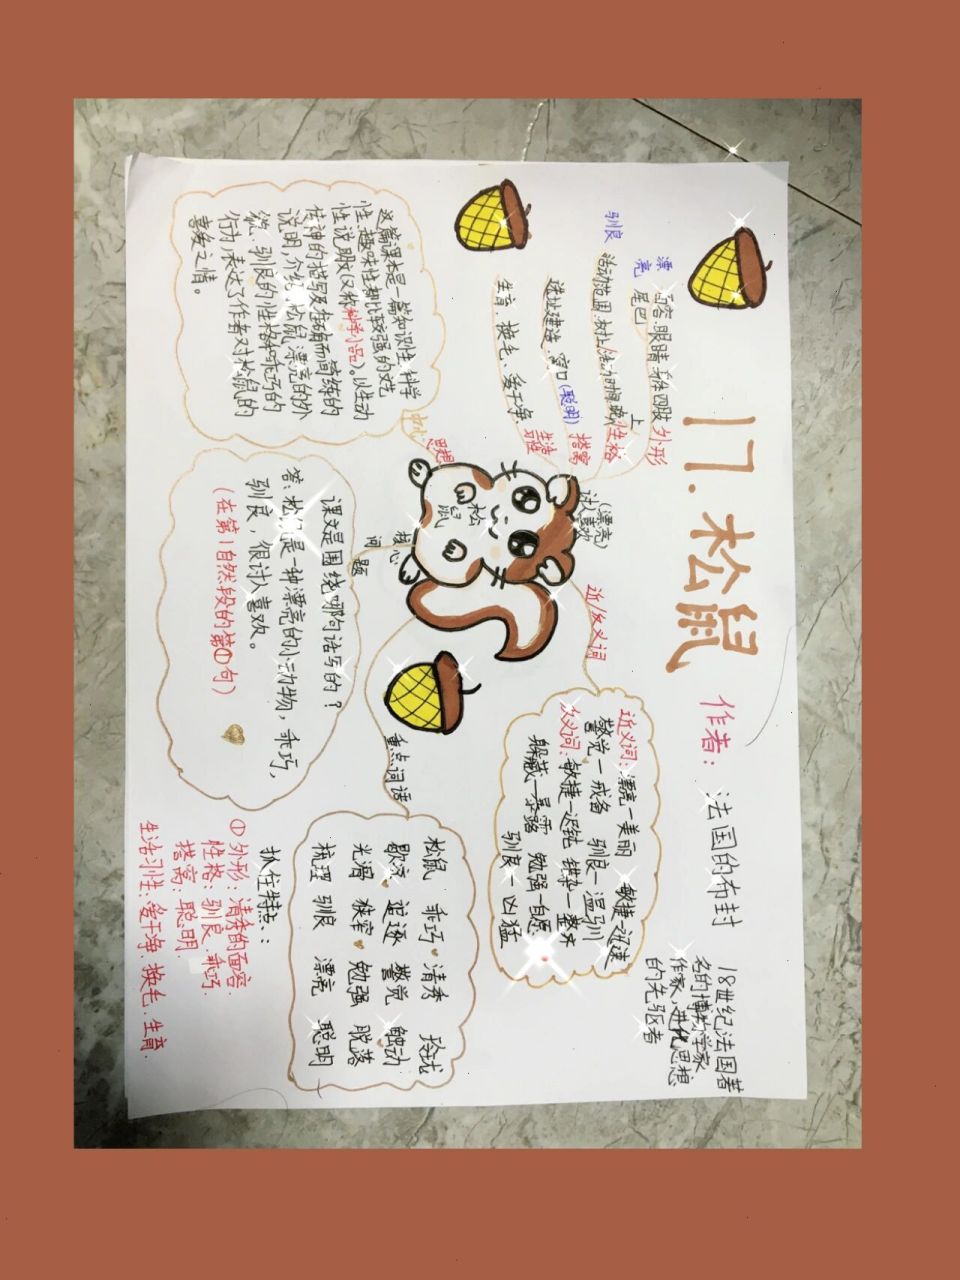 17. 松鼠
作者：法国的布封
18世纪法国著
名的博物学家
作家、进化思想
的先驱者
漂亮
面容、眼睛、身体、四肢
尾巴
上
外形
驯良
活动范围:树上
性格
搭窝
选址建造、窝口(聪明)
生育、换毛、爱干净
生活
习性
(漂亮)
讨人喜欢
松鼠
近/反义词
近义词:漂亮—美丽 敏捷—迅速
警觉—戒备 驯良—温驯
反义词:敏捷—迟钝 错杂—整齐
躲藏—暴露 勉强—自愿
驯良—凶猛
中心
思想
这篇课本是一篇知识性、科学
性、趣味性都比较强的文艺
性说明文(又称科学小品)。以生动
传神的描写及准确而简练的
说明,介绍了松鼠漂亮的外
貌、驯良的性格和乖巧的
行为,表达了作者对松鼠的
喜爱之情。
核心
问题
课文是围绕哪句话写的?
答:松鼠是一种漂亮的小动物,乖巧,
驯良,很讨人喜欢。
(在第1自然段的第①句)
重点词语
松鼠 乖巧 清秀 玲珑
歇凉 追逐 警觉 触动
光滑 狭窄 勉强 脱落
梳理 驯良 漂亮 聪明
抓住特点:
①外形:清秀的面容.
性格:驯良.乖巧.
搭窝:聪明.
生活习性:爱干净.换毛.生育.